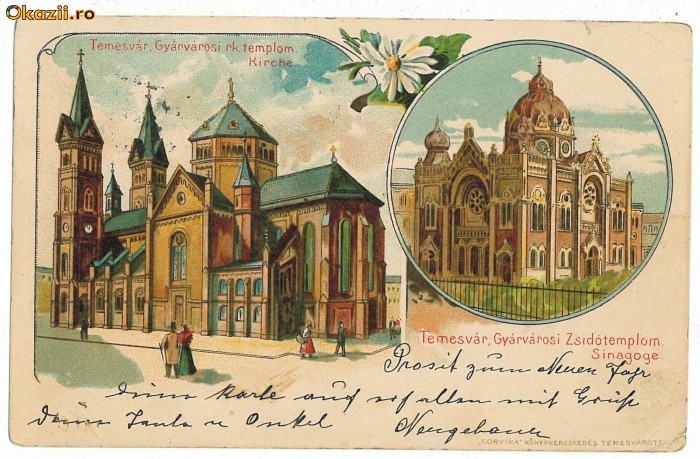 Okazii.ro
Temesvár, Gyárvárosi rk. templom.
Kirche
Temesvár, Gyárvárosi Zsidótemplom.
Sinagoge.
Prosit zum Neuen Jahr
karte auf mit Gruß
Tante u Onkel Neugebauer
„CORVINA" KÖNYVKERESKEDÉS TEMESVÁROTT.